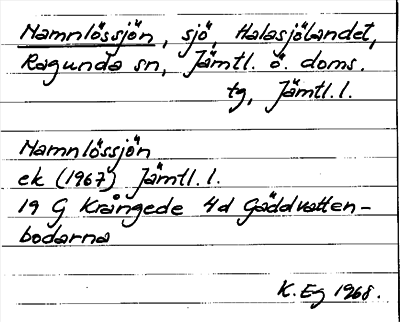 Namnlössjön, sjö, Halasjölandet,
Ragunda sn, Jämtl. ö. doms.
tg, Jämtl. l.
Namnlössjön
ek (1967) Jämtl. l.
19 G Krångede 4d Gäddvatten-
bodarna
K. Eg 1968.